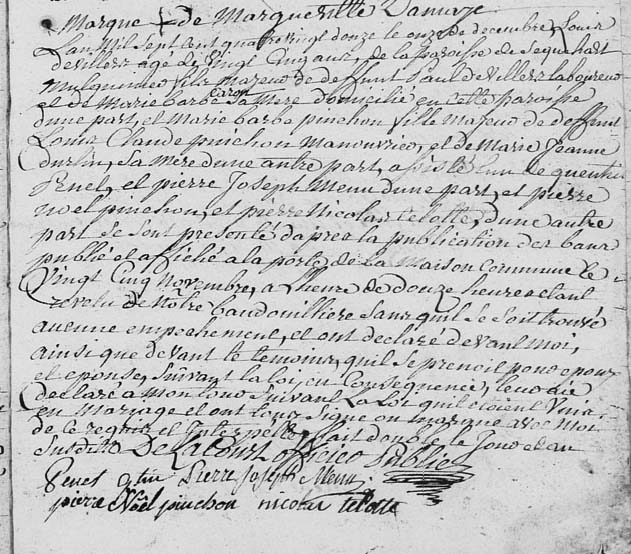 Marque + de Marqueville
Lan Mil Sept Cent quatre vingt douze le onze decembre, Louis
devillers age de vingt cinq ans, de la paroisse de Sequehart
fils Majeur de deffunt Paul devillers laboureur
et de Marie barbe caron sa Mere domicilié en cette paroisse
dune part, et Marie barbe pinchon fille Majeur de deffunt
Louis Claude pinchon Manouvrier, et de Marie Jeanne
sa Mere dune autre part, assisté de quentin
Penet, et pierre Joseph Menu dune part, et pierre
noel pinchon, et pierre Nicolas telotte, dune autre
part se sont presenté dapres la publication des bans
publié et affiché a la porte de la Maison Commune le
vingt Cinq novembre, a lheure de douze heure
revetu de Notre sans quil se soit trouvé
aucune empechement, et ont declaré devant Moi,
ainsi que devant le temoins, quil se prenoit pour epoux
et epouse, suivant la loi, en Consequence,
declaré a Mon tour suivant la Loi quil etoient Unis
en Mariage et ont tous Signé ou marque avec Moi
de ce requis et interpellé fait double le Jour et an
Susdits Delacourt officier Public
Penet Pierre Joseph Menu
piere Noël pinchon nicolas telotte